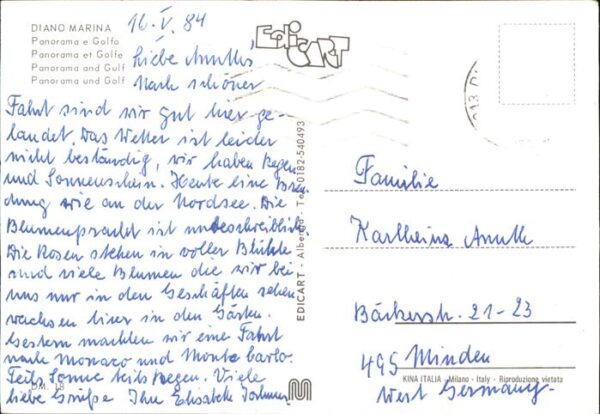 DIANO MARINA
Panorama e Golfo
Panorama et Golfe
Panorama and Gulf
Panorama und Golf
16. V. 84
Liebe Amuths,
Nach schöner
Fahrt sind wir gut hier ge-
landet. Das Wetter ist leider
nicht beständig, wir haben Regen
und Sonnenschein. Heute eine Bran-
dung wie an der Nordsee. Die
Blumenpracht ist unbeschreiblich.
Die Rosen stehen in voller Blühte
und viele Blumen die wir bei
uns nur in den Geschäften sehen
wachsen hier in den Gärten.
Gestern machten wir eine Fahrt
nach Monaco und Monte Carlo.
Teils Sonne teils Regen. Viele
liebe Grüße Ihre Elisabeth
D.M. 18
EDICART
EDICART - Albenga - Tel. 0182-540493
Familie
Karlheinz Amuth
Bäckerstr. 21-23
495 Minden
West Germany
KINA ITALIA - Milano - Italy - Riproduzione vietata